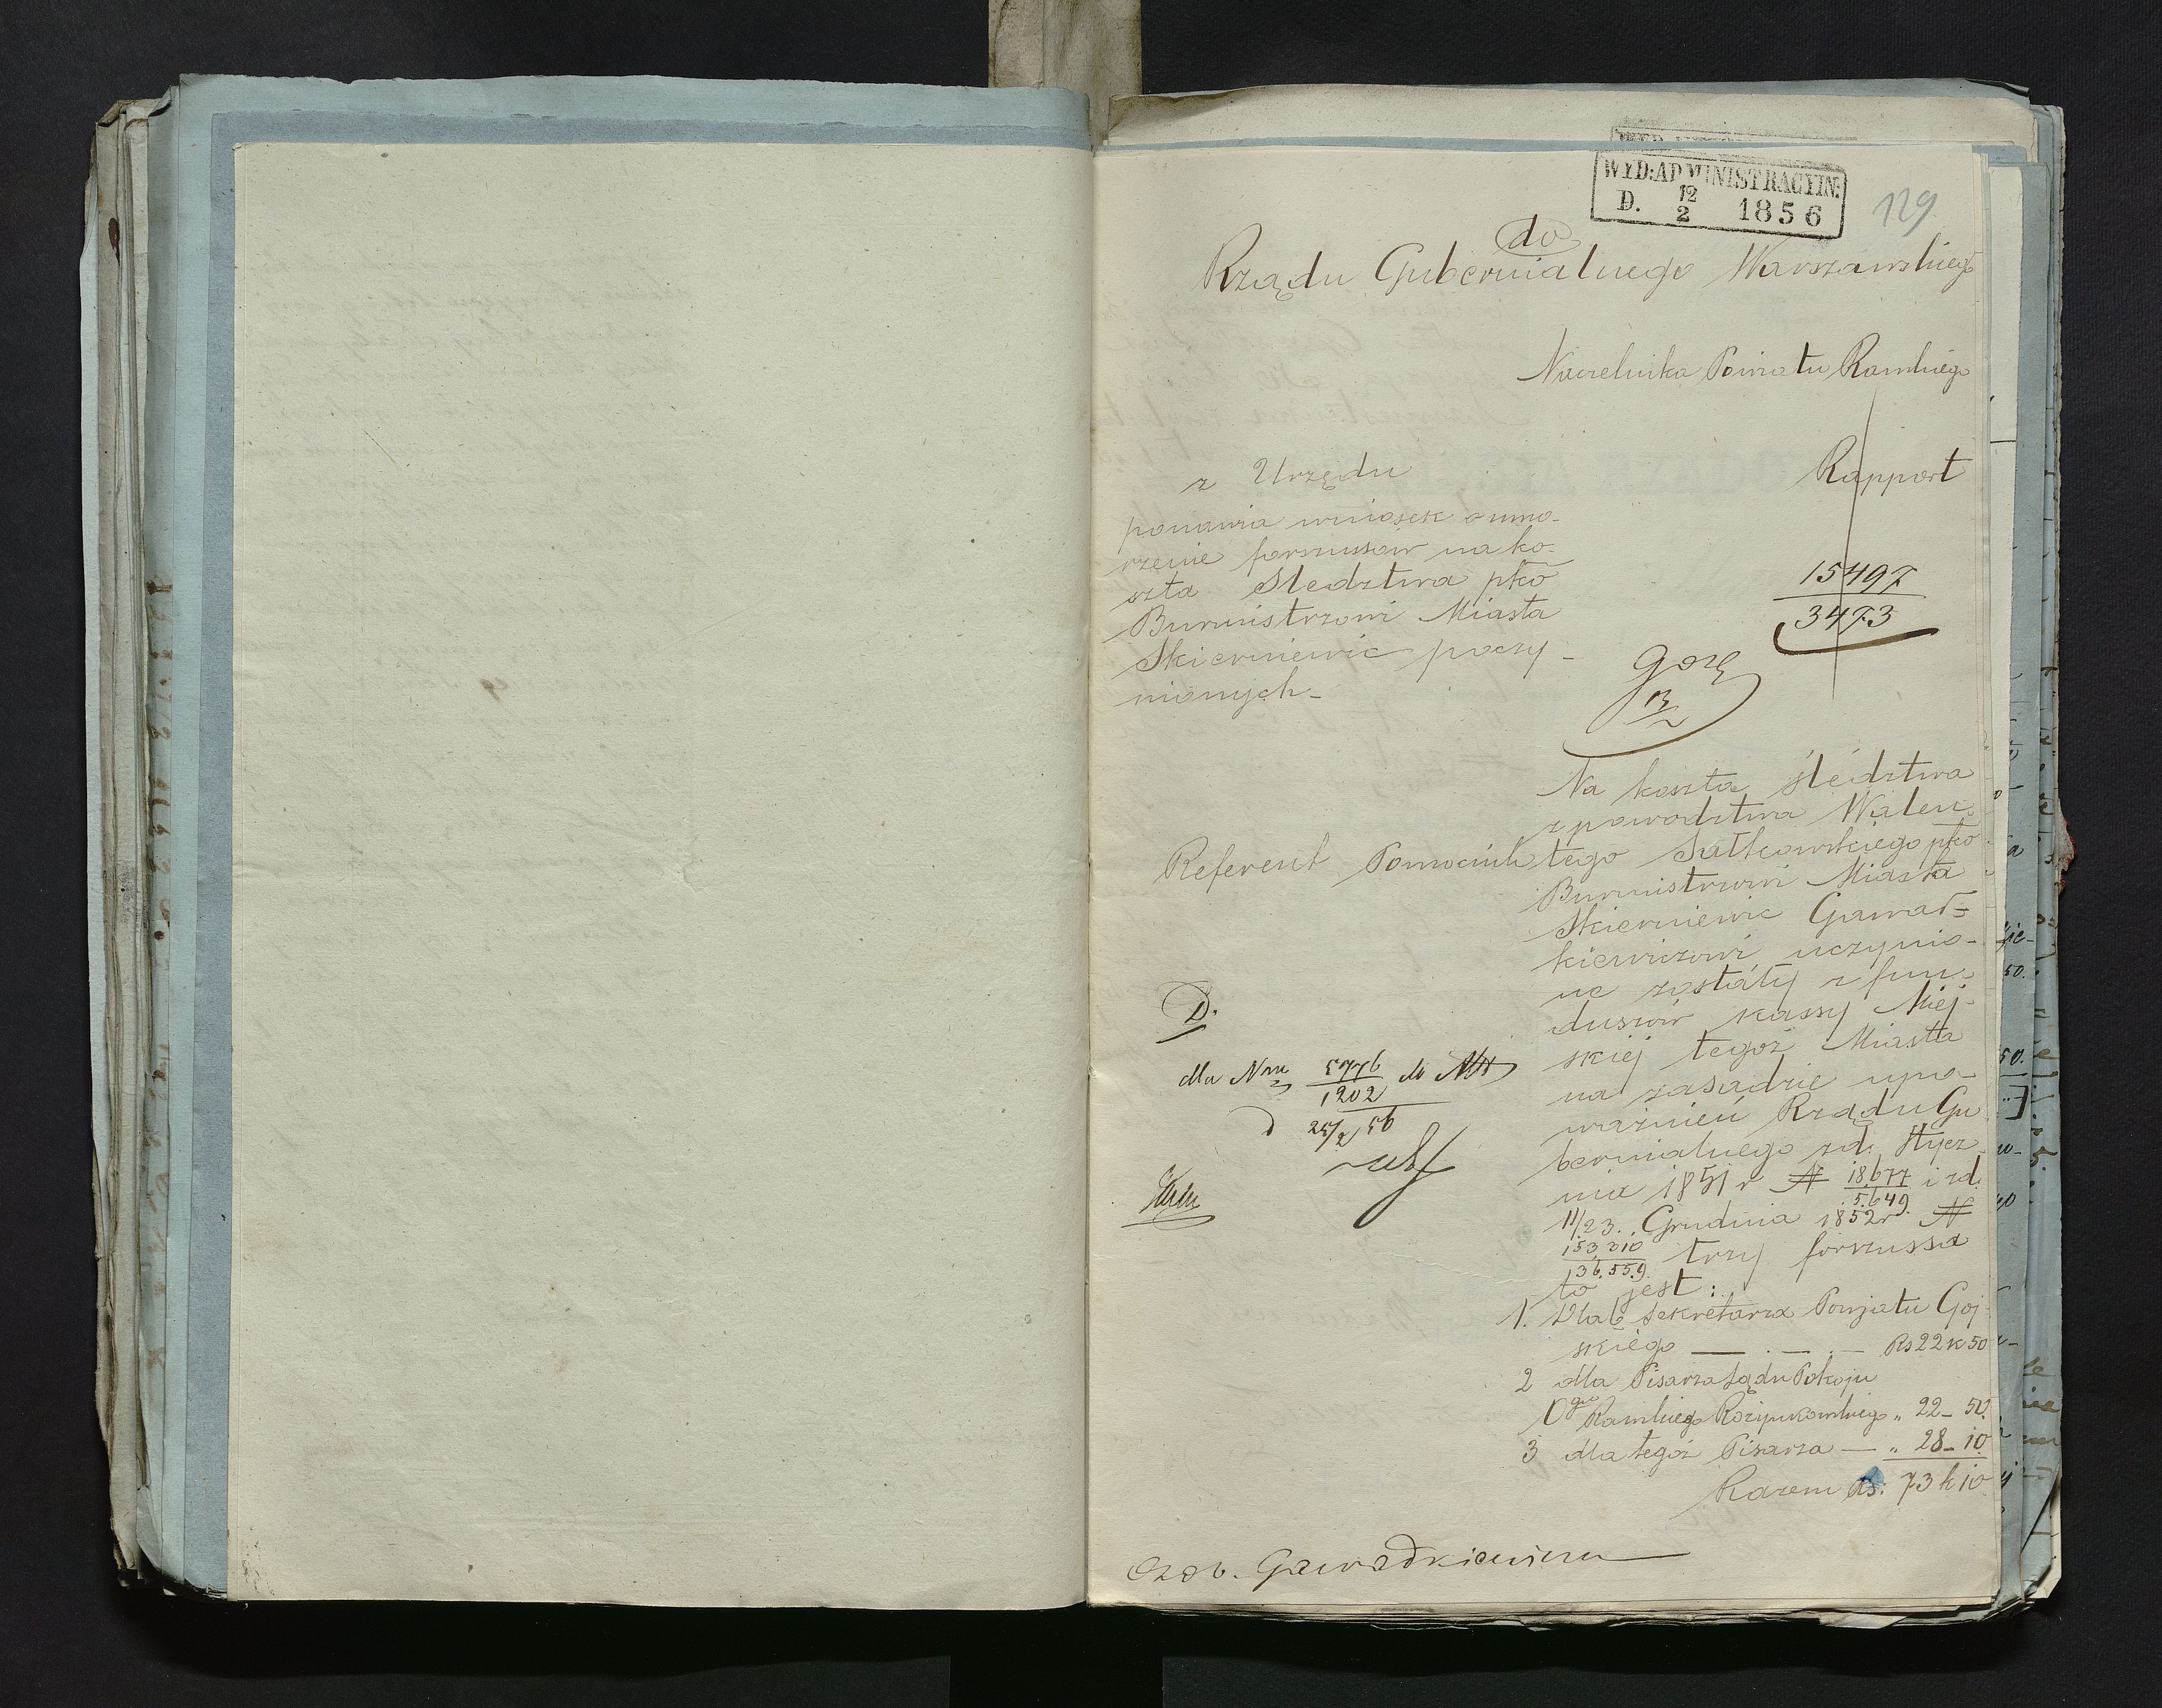 WYD: ADMINISTRACYIN:
D. 12/2 1856
129
do
Rządu Gubernialnego Warszawskiego
Naczelnika Powiatu Rawskiego
Rapport
z Urzędu
ponawia wniosek o umo-
rzenie forszusów na ko-
szta Sledztwa pko
Burmistrzowi Miasta
Skierniewic poczy-
nionych-
15497
3473
Na koszta śledztwa
z powodztwa Walen-
tego Sułkowskiego pko
Burmistrzowi Miasta
Skierniewic Gawad-
kiewiczowi uczynio-
ne zostały z fun-
duszów kassy Miej-
skiej tegoż Miasta
na zasadzie upo-
ważnień Rządu Gu
bernialnego z d. Stycz
nia 1851 r N 18.677/5.649 i z d.
11/23. Grudnia 1852 r N
153,310/36.559 trzy forszussa
to jest:
1. Dla b Sekretarza Powiatu Goj
skiego — . — . — Rs 22 k 50
2 dla Pisarza Sądu Pokoju
Ogo Rawskiego " 22 - 50.
3 dla tegoż Pisarza — " 28 - 10.
Razem Rs. 73 k 10
Referent Pomocnik
D.
dla Nru 5776/1202 do
d 25/2 56
Gawadkiewicza